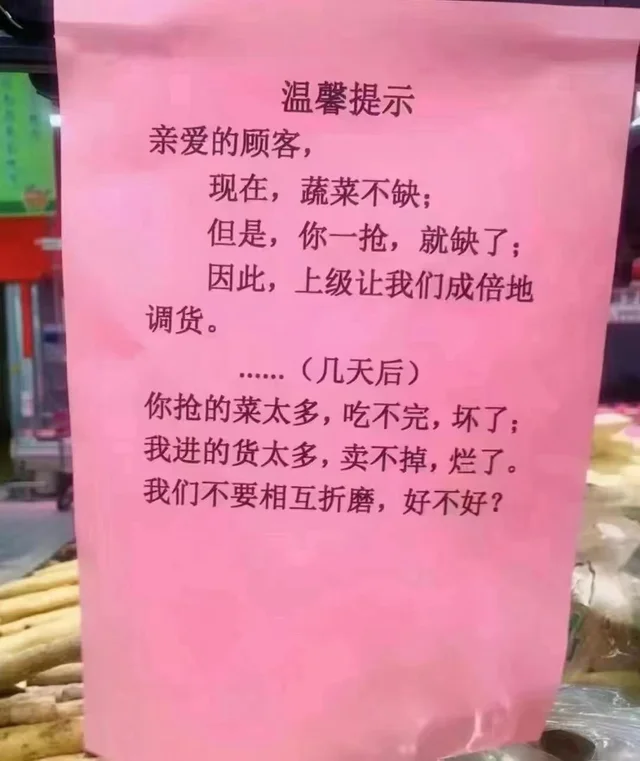 温馨提示
亲爱的顾客，
现在，蔬菜不缺；
但是，你一抢，就缺了；
因此，上级让我们成倍地
调货。
……（几天后）
你抢的菜太多，吃不完，坏了；
我进的货太多，卖不掉，烂了。
我们不要相互折磨，好不好？